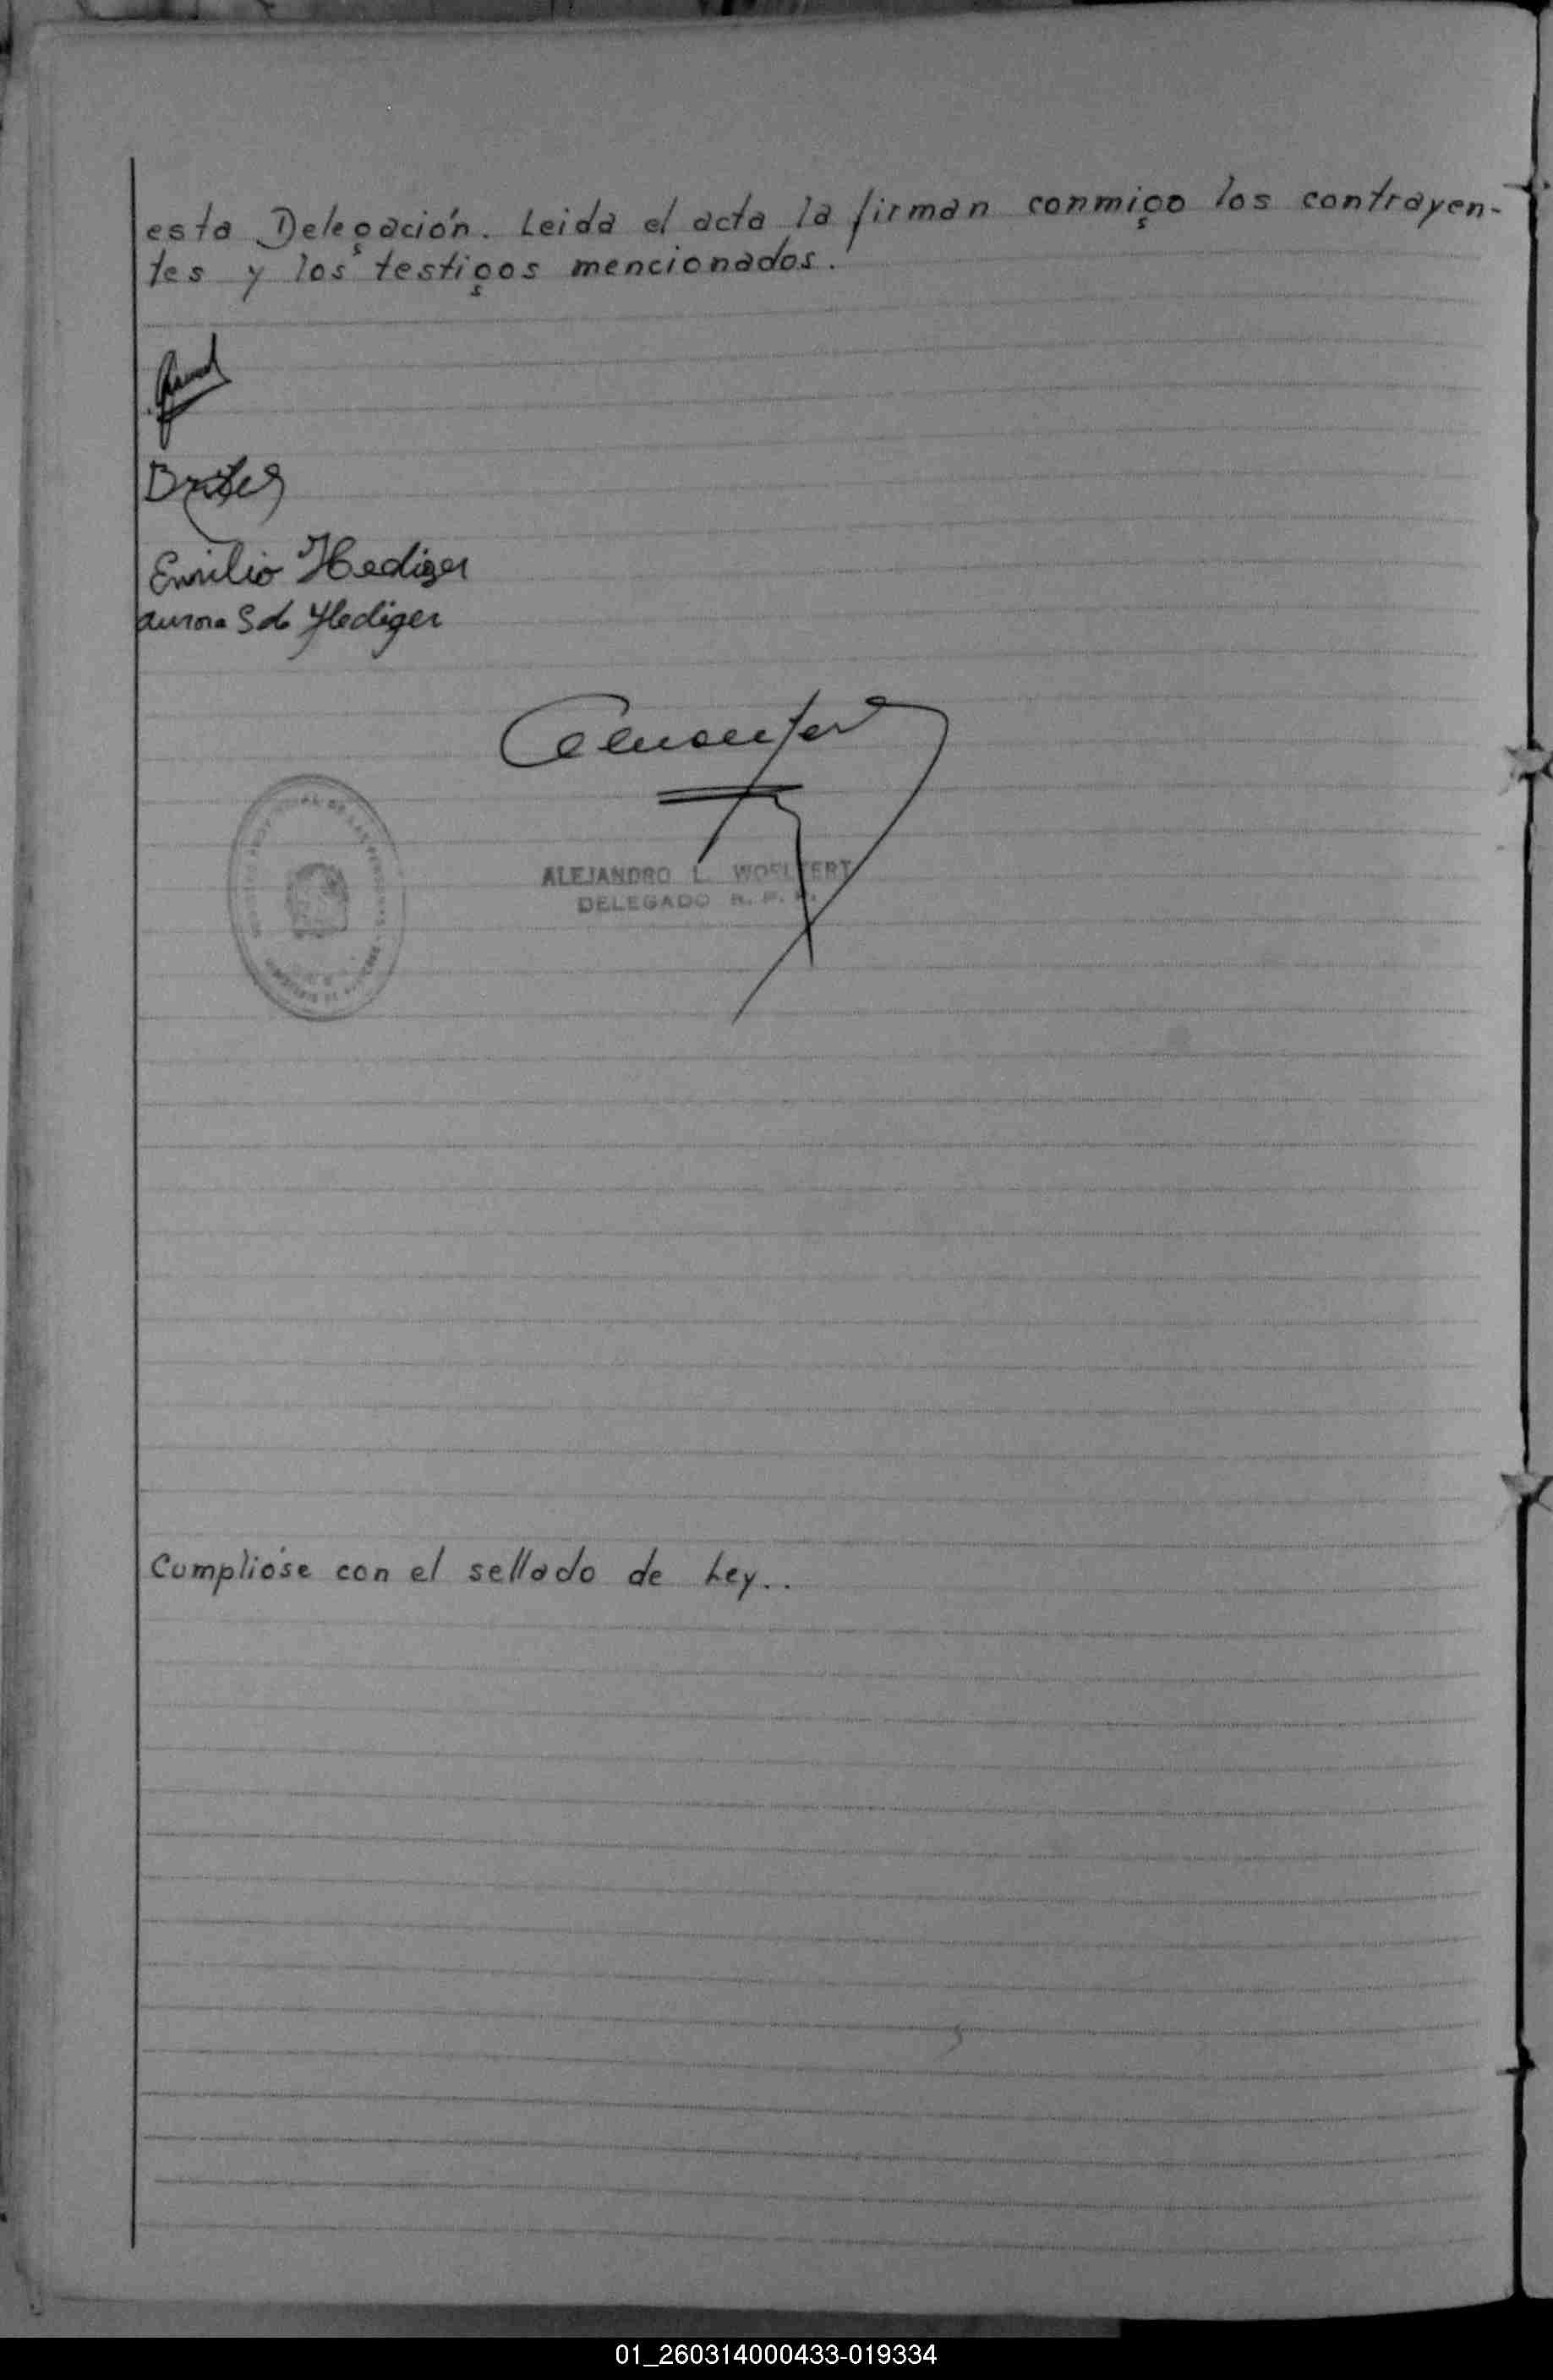 esta Delegación. Leida el acta la firman conmigo los contrayen-
tes y los testigos mencionados.
Emilio Hediger
Aurora S de Hediger
ALEJANDRO L. WOELFERT
DELEGADO R. P.
Cumplióse con el sellado de Ley..
01_260314000433-019334